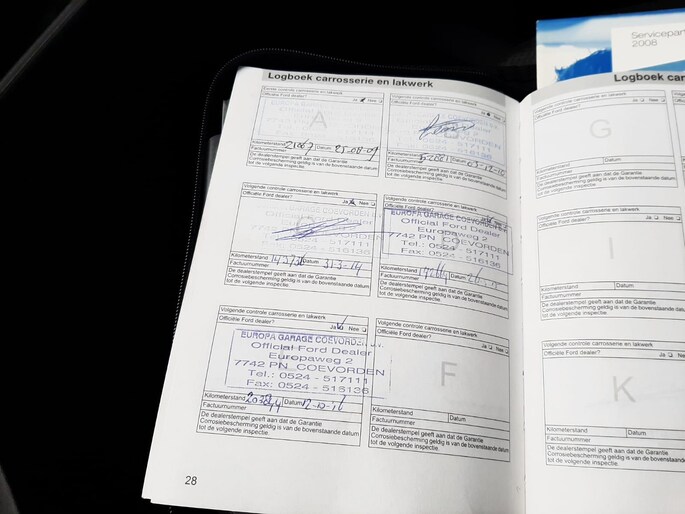 Servicepart
2008
Logboek carrosserie en lakwerk
Eerste controle carrosserie en lakwerk
Officiële Ford dealer? Ja Nee
A
Kilometerstand 21067 Datum 25-08-09
Factuurnummer
De dealerstempel geeft aan dat de Garantie
Corrosiebescherming geldig is van de bovenstaande datum
tot de volgende inspectie.
Volgende controle carrosserie en lakwerk
Officiële Ford dealer? Ja Nee
Kilometerstand Datum
Factuurnummer
De dealerstempel geeft aan dat de Garantie
Corrosiebescherming geldig is van de bovenstaande datum
tot de volgende inspectie.
Volgende controle carrosserie en lakwerk
Officiële Ford dealer? Ja Nee
517111
516136
Kilometerstand Datum 31-3-14
Factuurnummer
De dealerstempel geeft aan dat de Garantie
Corrosiebescherming geldig is van de bovenstaande datum
tot de volgende inspectie.
Volgende controle carrosserie en lakwerk
Officiële Ford dealer?
EUROPA GARAGE COEVORDEN
Official Ford Dealer
Europaweg 2
7742 PN COEVORDEN
Tel.: 0524 - 517111
Fax: 0524 - 516136
Kilometerstand Datum
Factuurnummer
De dealerstempel geeft aan dat de Garantie
Corrosiebescherming geldig is van de bovenstaande datum
tot de volgende inspectie.
Volgende controle carrosserie en lakwerk
Officiële Ford dealer? Ja Nee
EUROPA GARAGE COEVORDEN
Official Ford Dealer
Europaweg 2
7742 PN COEVORDEN
Tel.: 0524 - 517111
Fax: 0524 - 516136
Kilometerstand Datum 12-10-16
Factuurnummer
De dealerstempel geeft aan dat de Garantie
Corrosiebescherming geldig is van de bovenstaande datum
tot de volgende inspectie.
Volgende controle carrosserie en lakwerk
Officiële Ford dealer? Ja Nee
F
Kilometerstand Datum
Factuurnummer
De dealerstempel geeft aan dat de Garantie
Corrosiebescherming geldig is van de bovenstaande datum
tot de volgende inspectie.
28
Logboek carros
Volgende controle carrosserie en lakwerk
Officiële Ford dealer? Ja Nee
G
Kilometerstand Datum
Factuurnummer
De dealerstempel geeft aan dat de Garantie
Corrosiebescherming geldig is van de bovenstaande datum
tot de volgende inspectie.
Volgende controle carrosserie en lakwerk
Officiële Ford dealer? Ja Nee
I
Kilometerstand Datum
Factuurnummer
De dealerstempel geeft aan dat de Garantie
Corrosiebescherming geldig is van de bovenstaande datum
tot de volgende inspectie.
Volgende controle carrosserie en lakwerk
Officiële Ford dealer? Ja Nee
K
Kilometerstand Datum
Factuurnummer
De dealerstempel geeft aan dat de Garantie
Corrosiebescherming geldig is van de bovenstaande datum
tot de volgende inspectie.